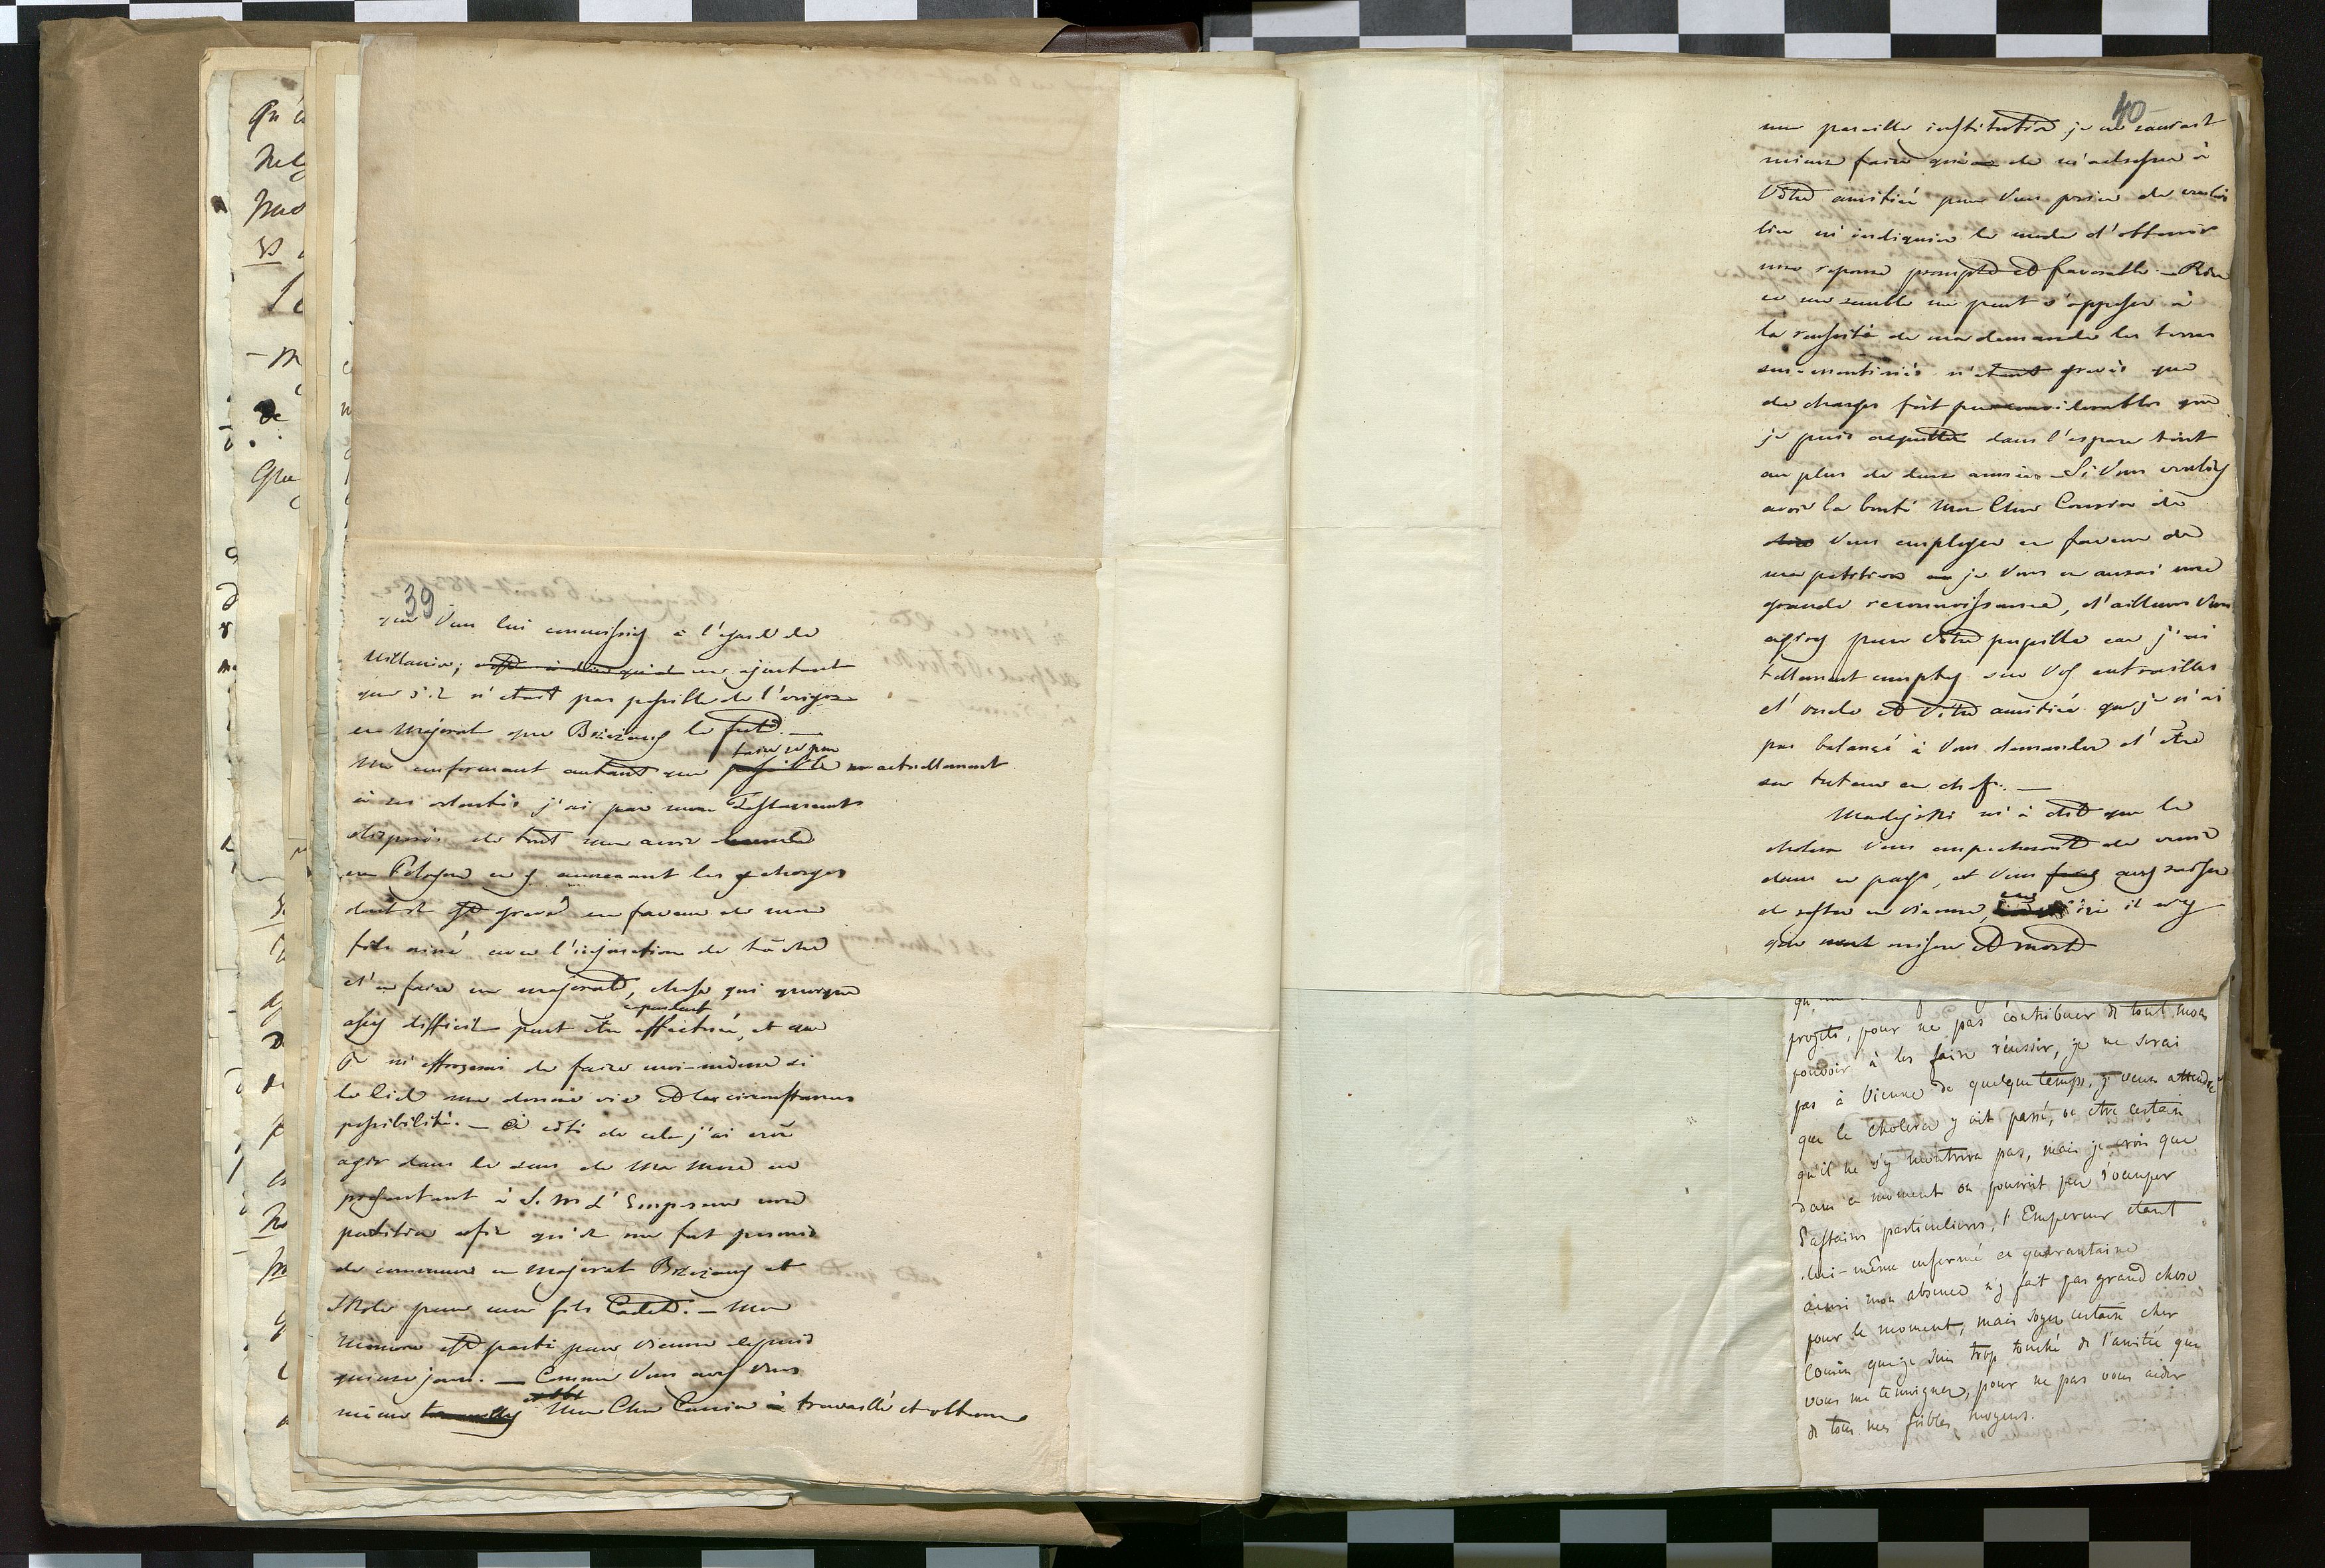 39
que Vous lui connoissiez à l'egard de
Villanow; me ajoutant
que s'il n'etait pas possible de l'eriger
en Majorat que Brzezany le fut. —
faire se peu
Me conformant autant que possible actuellement
à ses volontés j'ai par mon Testament
disposé de tout mon avoir
en Pologne en y annexant les charges
dont il est grevé en faveur de mon
fils ainé avec l'injonction de tâcher
d'en faire un majorat, chose qui quoique
cependant
assez difficile peut être effectuée, et que
je m'efforcerai de faire moi-même si
le Ciel me donne vie et les circonstances
possibilité. — à coté de cela j'ai crû
agir dans le sens de Ma Mere en
presentant à S. M. l'Empereur une
petition afin qu'il me fut permis
de convertir en Majorat Brzezany et
pour mon fils Cadet. — Mon
Memoire est parti pour Vienne depuis
quinze jours. — Comme Vous avez Vous
même Mon Cher Cousin travaillé et obtenu
40
une pareille institution je ne saurait
mieux faire que de m'adresser à
Votre amitié pour Vous prier de vouloir
bien m'indiquer le mode d'obtenir
une reponse prompte et favorable. — Rien
ce me semble ne peut s'opposer à
la reussite de ma demande les terres
sus-mentionés n'etant grevés que
de charges fort peu considerables que
je puis acquitter dans l'espace tout
au plus de deux années. — Si Vous vouliez
avoir la bonté Mon Cher Cousin de
Vous employer en faveur de
ma petition je Vous en aurai une
grande reconnoissance, d'ailleurs Vous
agirez pour Votre pupille car j'ai
tellement compté sur Vos entrailles
d'oncle et Votre amitié que je n'ai
pas balancé à Vous demander d'être
son tuteur en chef. —
Madejski m'à dit que le
cholera Vous empecheroit de venir
dans ce pays, et Vous avez raison
de rester en Vienne, car ici il n'y
que misere et mort
projets, pour ne pas contribuer de tout mon
pouvoir à les faire réussir, je ne serai
pas à Vienne de quelque temps, je veux attendre
que le cholera y ait passé, ou etre certain
qu'il ne s'y montrera pas, mais je crois que
dans ce moment on pourroit peu s'occuper
d'affaires particulieres, l'Empereur etant
lui-même enfermé en quarantaine
ainsi mon absence n'y fait pas grand chose
pour le moment, mais soyez certain cher
Cousin que je suis trop touché de l'amitié que
vous me temoignez, pour ne pas vous aider
de tous mes foibles moyens.